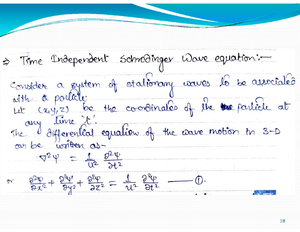 ⇒ Time Independent Schrodinger Wave equation:—
Consider a system of stationary waves to be associated
with a particle.
Let (x,y,z) be the coordinates of the particle at
any time 't'.
The differential equation of the wave motion in 3-D
can be written as—
∇²ψ = 1/u² ∂²ψ/∂t²
or ∂²ψ/∂x² + ∂²ψ/∂y² + ∂²ψ/∂z² = 1/u² ∂²ψ/∂t² —①.